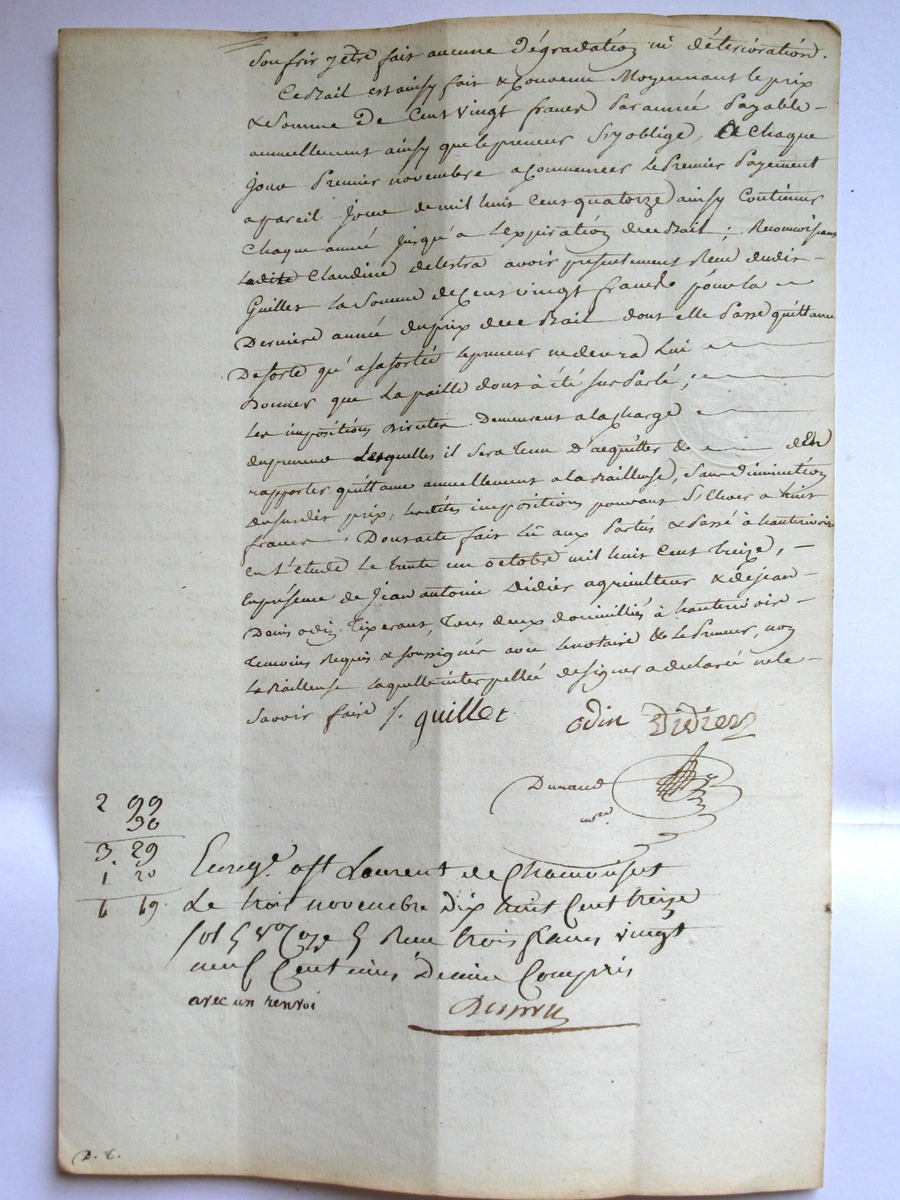 Souffrir y être fait aucune dégradation ni détérioration.
Ce Bail est ainsy fait & Convenu Moyennant le prix
& Somme De Cent Vingt francs Par année Payable
annuellement ainsy que le preneur S'y oblige, à Chaque
jour Premier novembre a Commencer Le Premier Payement
a pareil jour de mil huit Cent quatorze ainsy Continuer
Chaque année jusqu'à L'expiration de ce Bail; Reconnoissant
Ladite Claudine delestra avoir présentement Reçu dudit
Guillet la Somme de Cent vingt francs pour la
Dernière année du prix de ce Bail dont elle Passe quittance
De sorte qu'à sa sortie le preneur ne devra Lui
Donner que La paille dont à été sur Parlé;
Les impositions directes Demeurent a la charge
du preneur Lesquelles il Sera Tenu D'acquitter & d'en
rapporter quittance annuellement a la Bailleuse, Sans diminution
du susdit prix, lesdites impositions pouvant S'Elever a huit
francs. Dont acte fait lû aux Parties & Passé à hauterivoire
en L'étude Le trente un octobre mil huit Cent treize,
En présence de Jean antoine Didier agriculteur & de jean
Denis odin Tixerant, Tous deux domiciliés à hauterivoire
Temoins Requis & soussignés avec le notaire & Le Preneur, non
La Bailleuse Laquelle interpellée de signer a déclaré ne le
Savoir faire /.
guillet odin Didier
Durand
nore
2 99
30
3. 29
1 20
Enregé. a St Laurent de Chamousset
Le trois novembre dix huit Cent treize
fol Reçu trois francs vingt
neuf Centimes Dixième Compris
avec un renvoi
D. C.